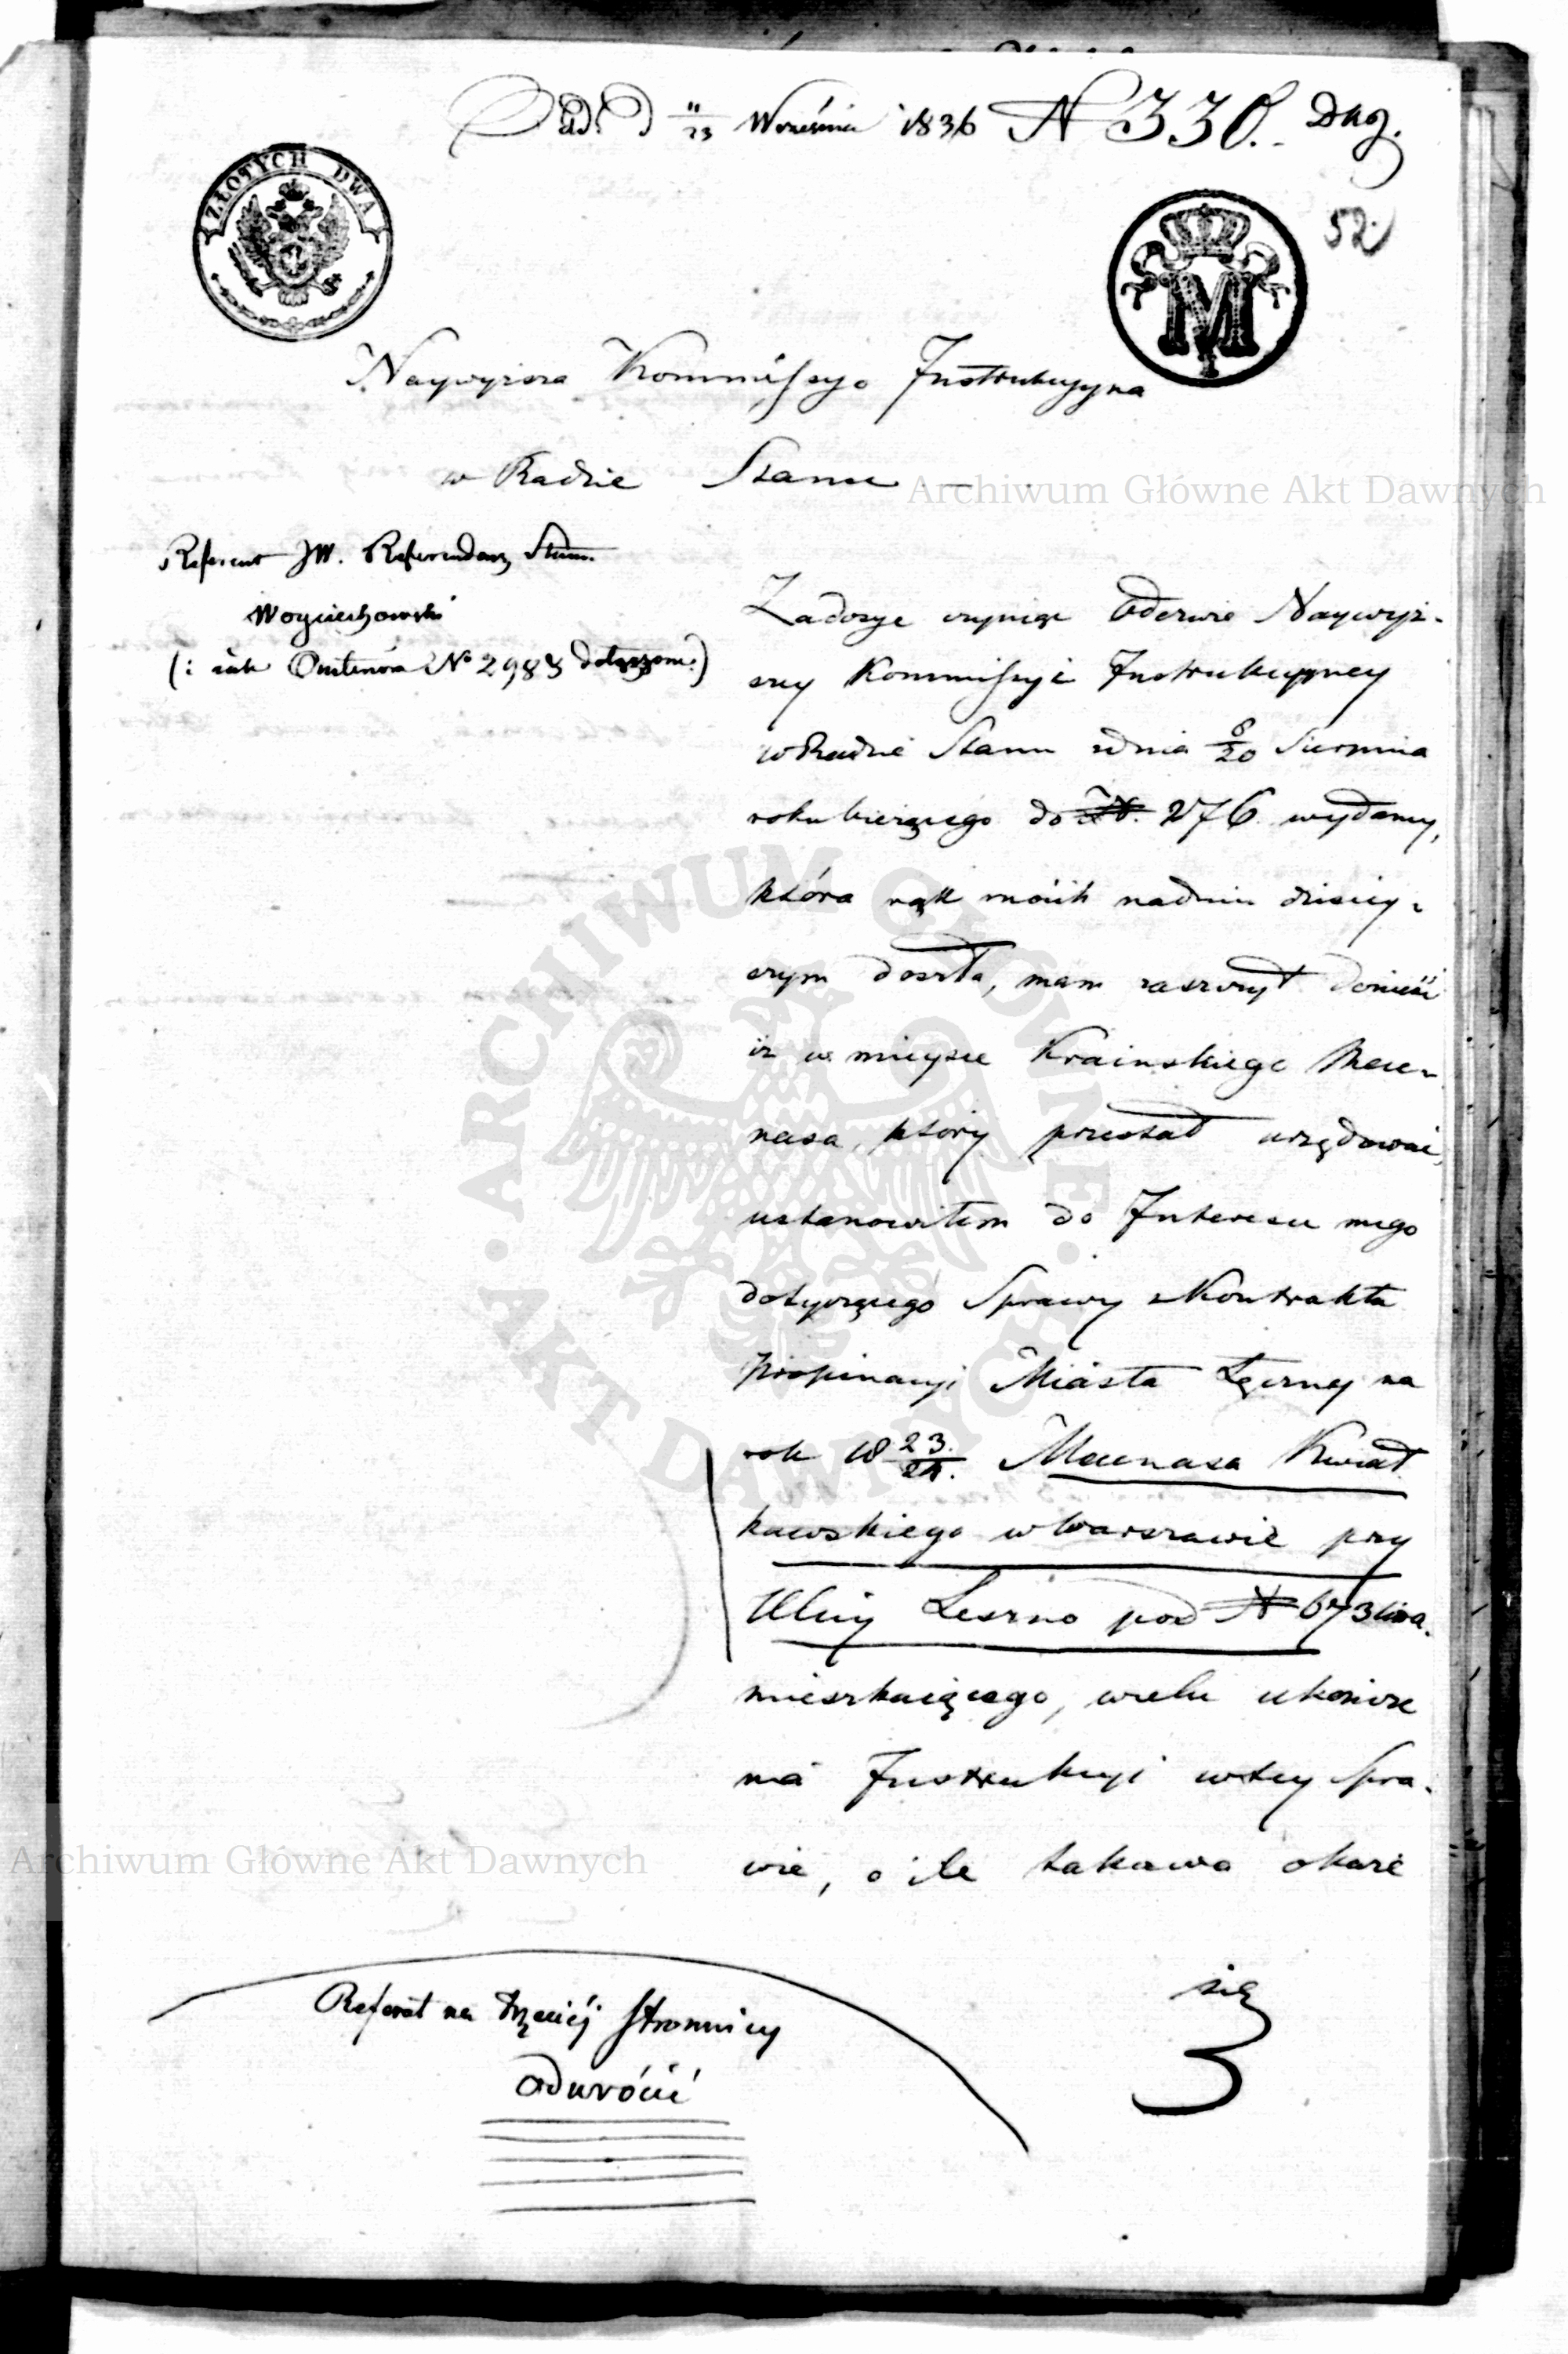 d. 11/23 Września 1836 N 330. Dug.
ZŁOTYCH DWA
M
52.
Naywyższa Kommissyo Instrukcyyna
w Radzie Stanu —
Archiwum Główne Akt Dawnych
Referent JW. Referendarz Stanu
Woyciechowski
(: akt Nº 2983 dołączone :)
Zadosyć czyniąc Odezwie Naywyż-
szey Kommissyi Instrukcyyney
w Radzie Stanu zdnia 8/20 Sierpnia
roku bieżącego do N. 276 wydaney,
która rąk moich nadniu dzisiey-
szym doszła, mam zaszczyt donieść
iż w mieysce Krainskiego Mece-
nasa, który przestał urzędować,
ustanowiłem do Interesu mego
dotyczącego Sprawy z Kontraktu
Propinacyi Miasta Łęczney na
rok 18 23/24. Mecenasa Kwiat
kowskiego w Warszawie przy
Ulicy Leszno pod N 673 lit a.
mieszkaiącego, wcelu ukończe
nia Instrukcyi wtey Spra-
wie, o ile takowa okaże
Archiwum Główne Akt Dawnych
się
Referat na trzeciéj stronnicy
odwrócić
ARCHIWUM GŁÓWNE · AKT DAWNYCH ·